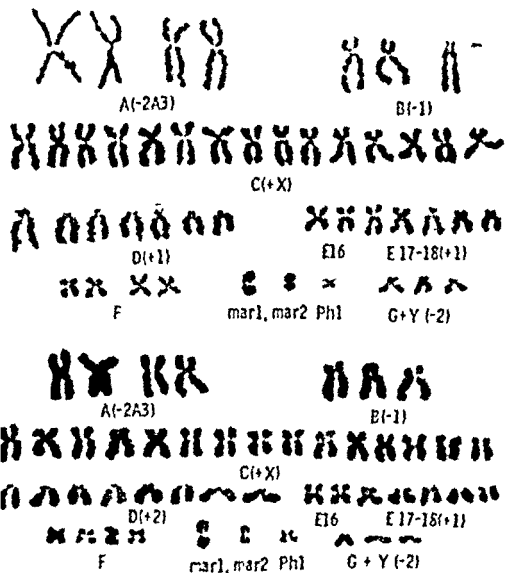 A(-2A3) B(-1)
C(+X)
D(+1) E16 E 17-18(+1)
F mar1, mar2 Ph1 G+Y (-2)
A(-2A3) B(-1)
C(+X)
D(+2) E16 E 17-18(+1)
F mar1, mar2 Ph1 G + Y (-2)